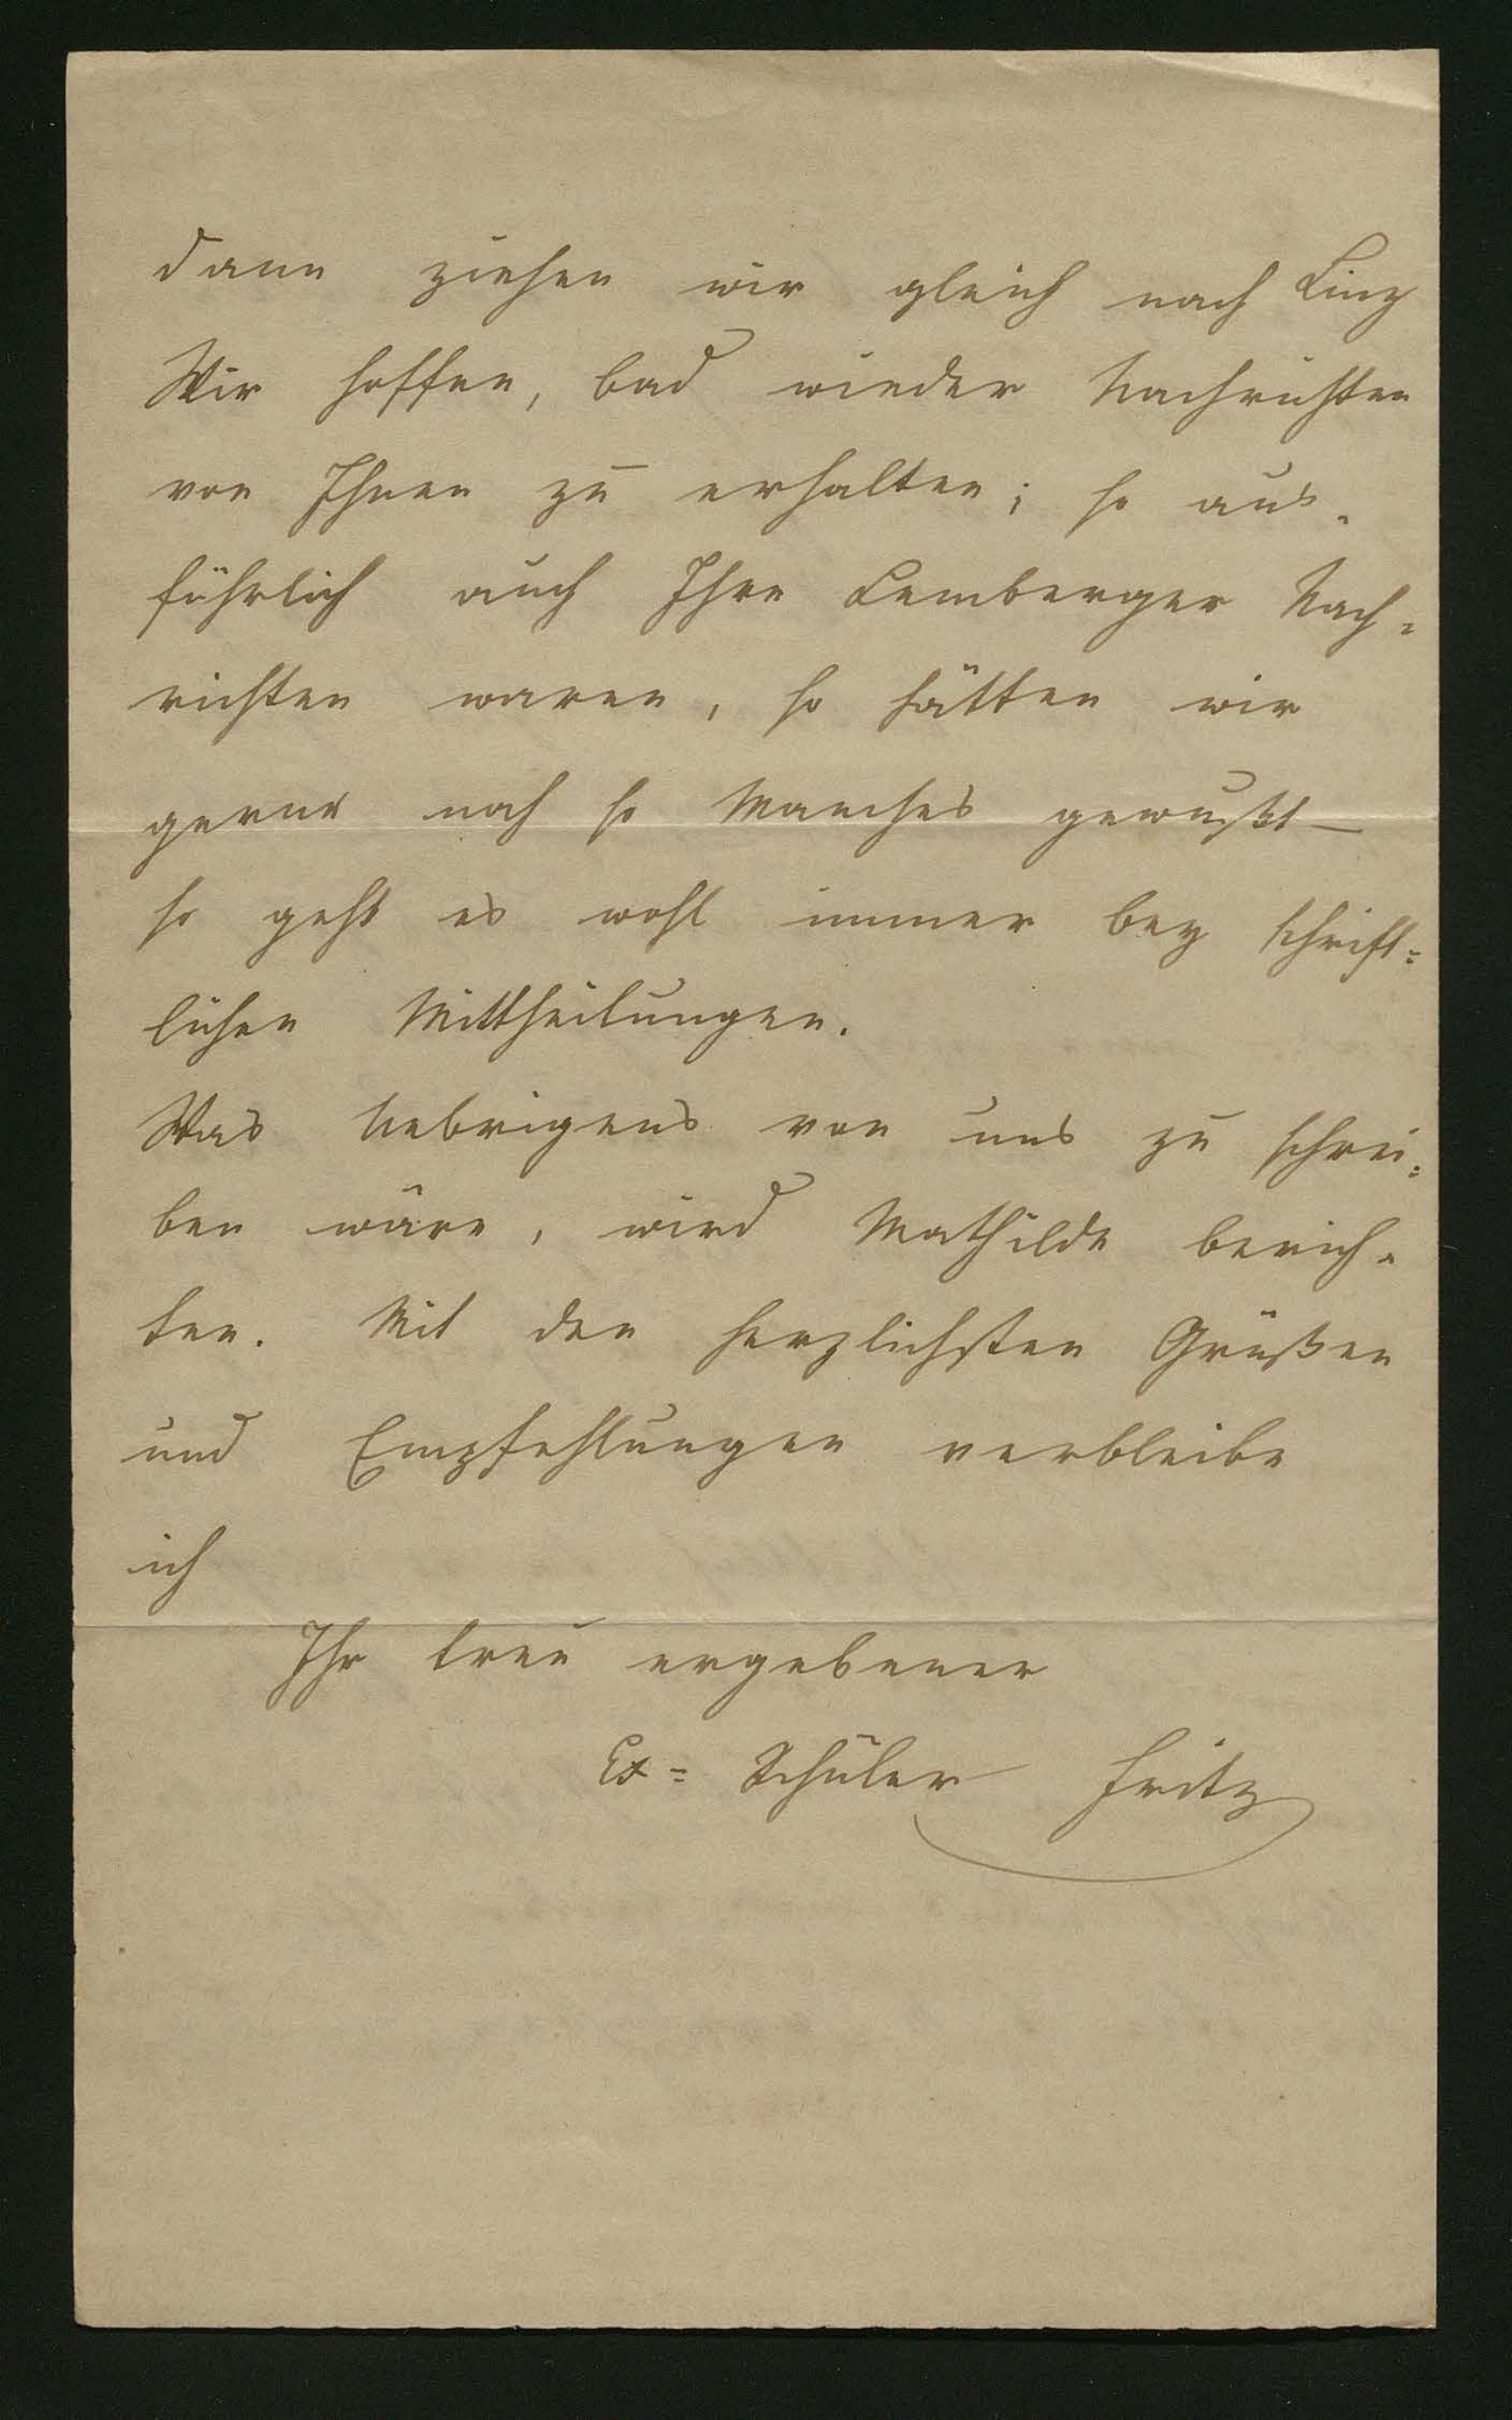 dann ziehen wir gleich nach Linz
Wir hoffen, bad wieder Nachrichten
von Ihnen zu erhalten; so aus-
führlich auch Ihre Lemberger Nach=
richten waren, so hätten wir
gerne noch so Manches gewußt —
so geht es wohl immer bey schrift=
lichen Mittheilungen.
Was Uebrigens von uns zu schrei=
ben wäre, wird Mathilde berich=
ten. Mit den herzlichsten Grüßen
und Empfehlungen verbleibe
ich
Ihr treu ergebener
Ex= Schüler Fritz